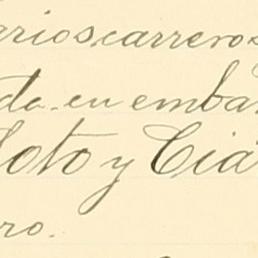 arios, carreros
da en emba
Soto y Cia
ro.